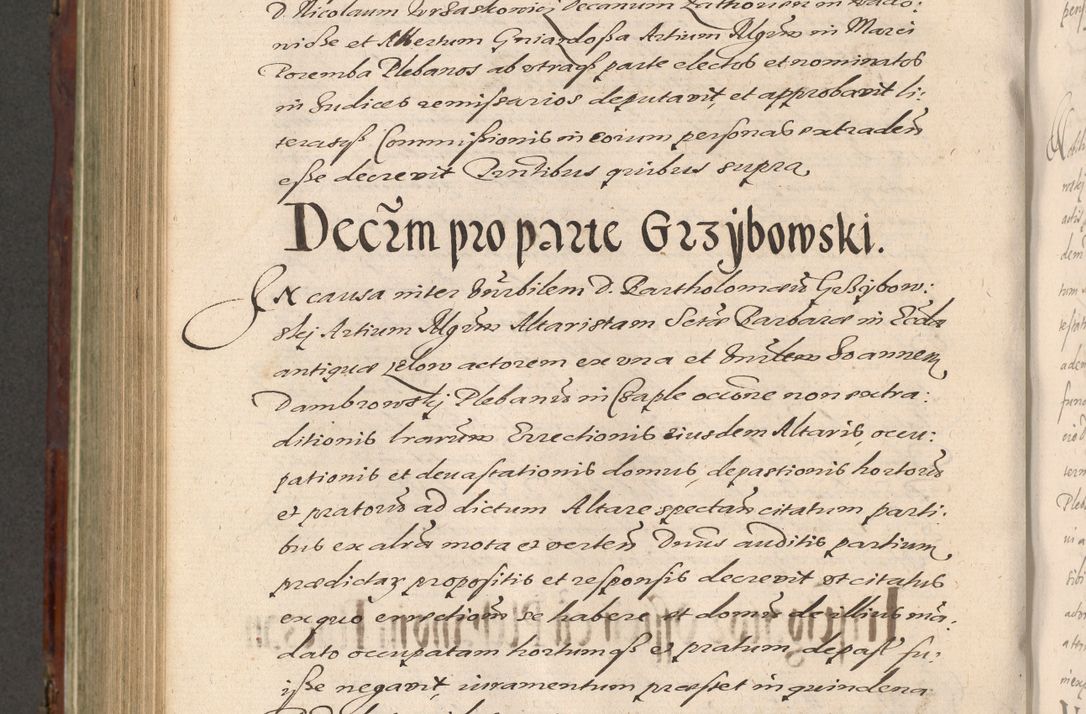 D. Nicolaum Zvrsaskowicz Decanum Zathorien in Wado:
wicße et Albertum Gniardoßa Artium Mgrũm in Marci
Poremba Plebanos ab vtraqß parte electos et nominatos
in Iudices remißarios deputavit, et approbavit li:
terasqß Commißionis in eorum personas extradeñ
eße decrevit Pntibus quibus supra,
Decr̃m pro parte Grzÿbowski.
In causa inter Vnr̃bilem D. Bartholomæũ Grßÿbow:
skj Artium Mgrũm Altaristam Sctæ Barbaræ in Eccla
antiqua Zelow actorem ex vna et Vnrblem Joannem
Dambrowskj Plebanũ in Czaple occõne non extra:
ditionis lrarũm Errectionis eiusdem Altaris, occu:
pationis et deuastationis domus, depastionis hortorũ
et pratorũ ad dictum Altare spectañ citatum parti:
bus ex alrã mota et verteñ Dnus auditis partium
prædictaꝝ propositis et responsis decrevit vt citatus
ex quo errectiom̃ se habere et domũ de illius mã:
dato occupatam hortumqß et pratum depast̃ fu:
iße negavit iuramentum præstet in quindena